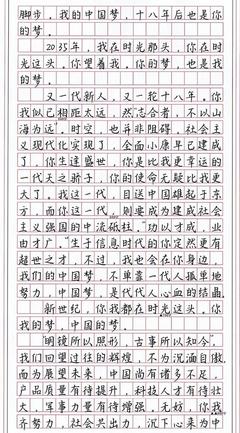 脚步，我的中国梦，十八年后也是你
的梦。
2035年，我在时光那头，你在时
光这头。你望着我，你的梦，也是我
的梦。
又一代新人，又一轮十八年。你
我似已相距太远，然“志合者，不以山
海为远”。时空，也并非阻碍。社会主
义现代化实现了，全面小康早已建成
了，你生逢盛世，你是比我更幸运的
一代天之骄子，你的使命无疑比我更
大了。我这一代，目送中国雄起于东
方，而你这一代，则要成为建成社会
主义强国的中流砥柱。“功以才成，业
由才广。”生于信息时代的你定然更有
超世之才，不过，我也会在你身边，
我们的中国梦，不单靠一代人孤单地
努力，中国梦，是代代人心血的结晶。
新世纪，你我都在时光这头。你
我的梦，中国的梦。
“明镜所以照形，古事所以知今”，
我们回望过往的辉煌，不为沉湎自傲，
而为展望未来，中国尚有诸多不足，
户品质量有待提升，科技人才有待壮
大，军事力量有待增强。无妨，你我
齐努力，社会共出力，沉下心来为中